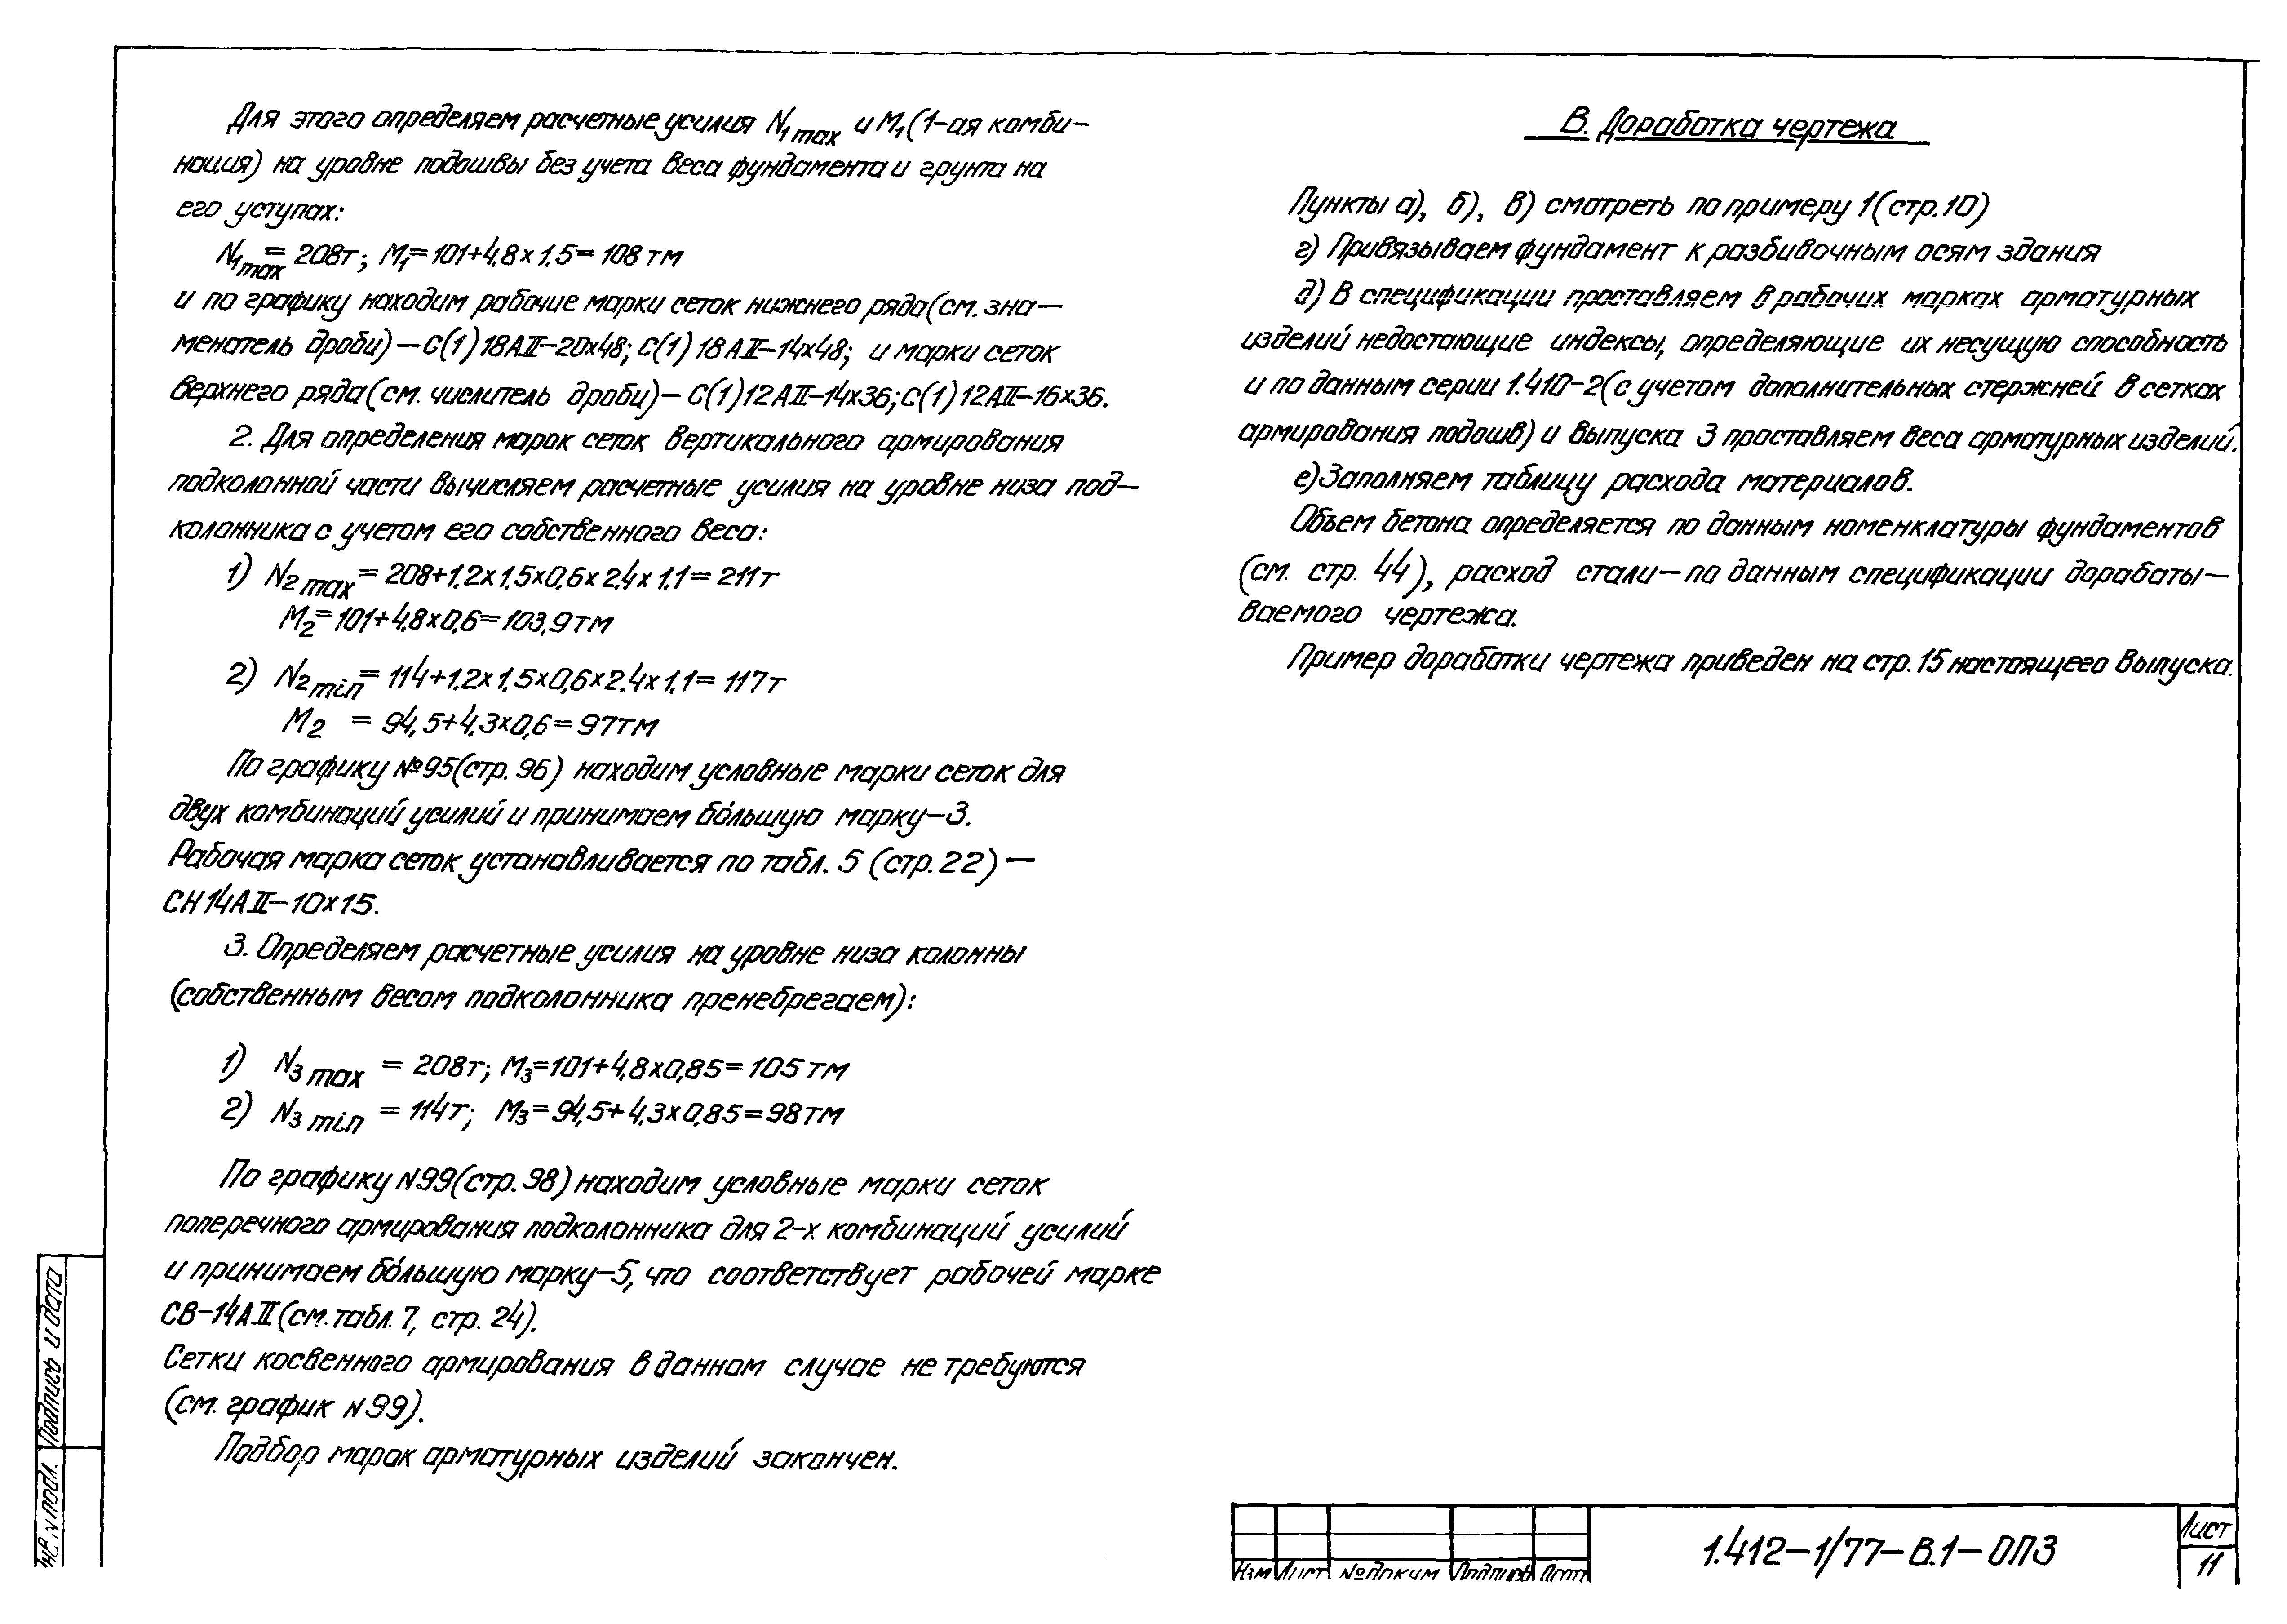 Для этого определяем расчетные усилия N₁ max и М₁ (1-ая комби-
нация) на уровне подошвы без учета веса фундамента и грунта на
его уступах:
N₁ max = 208т; М₁ = 101+4,8×1,5 = 108 тм
и по графику находим рабочие марки сеток нижнего ряда (см. зна-
менатель дроби) – С(1)18АII–20×48; С(1)18АII–14×48; и марки сеток
верхнего ряда (см. числитель дроби) – С(1)12АII–14×36; С(1)12АII–16×36.
2. Для определения марок сеток вертикального армирования
подколонной части вычисляем расчетные усилия на уровне низа под-
колонника с учетом его собственного веса:
1) N₂ max = 208+1,2×1,5×0,6×2,4×1,1 = 211т
М₂ = 101+4,8×0,6 = 103,9тм
2) N₂ min = 114+1,2×1,5×0,6×2,4×1,1 = 117т
М₂ = 94,5+4,3×0,6 = 97тм
По графику №95 (стр. 96) находим условные марки сеток для
двух комбинаций усилий и принимаем бо́льшую марку–3.
Рабочая марка сеток устанавливается по табл. 5 (стр. 22) –
СН14АII–10×15.
3. Определяем расчетные усилия на уровне низа колонны
(собственным весом подколонника пренебрегаем):
1) N₃ max = 208т; М₃=101+4,8×0,85 = 105 тм
2) N₃ min = 114т; М₃ = 94,5+4,3×0,85 = 98тм
По графику N99 (стр. 98) находим условные марки сеток
поперечного армирования подколонника для 2-х комбинаций усилий
и принимаем бо́льшую марку–5, что соответствует рабочей марке
СВ–14АII (см. табл. 7, стр. 24).
Сетки косвенного армирования в данном случае не требуются
(см. график N99).
Подбор марок арматурных изделий закончен.
В. Доработка чертежа
Пункты а), б), в) смотреть по примеру 1 (стр. 10)
г) Привязываем фундамент к разбивочным осям здания
д) В спецификации проставляем в рабочих марках арматурных
изделий недостающие индексы, определяющие их несущую способность
и по данным серии 1.410-2 (с учетом дополнительных стержней в сетках
армирования подошв) и выпуска 3 проставляем веса арматурных изделий.
е) Заполняем таблицу расхода материалов.
Объем бетона определяется по данным номенклатуры фундаментов
(см. стр. 44), расход стали – по данным спецификации дорабаты-
ваемого чертежа.
Пример доработки чертежа приведен на стр. 15 настоящего выпуска.
Подпись и дата
Инв. N подл.
Изм Лист № докум Подпись Дата
1.412–1/77–В.1–ОПЗ
Лист
11